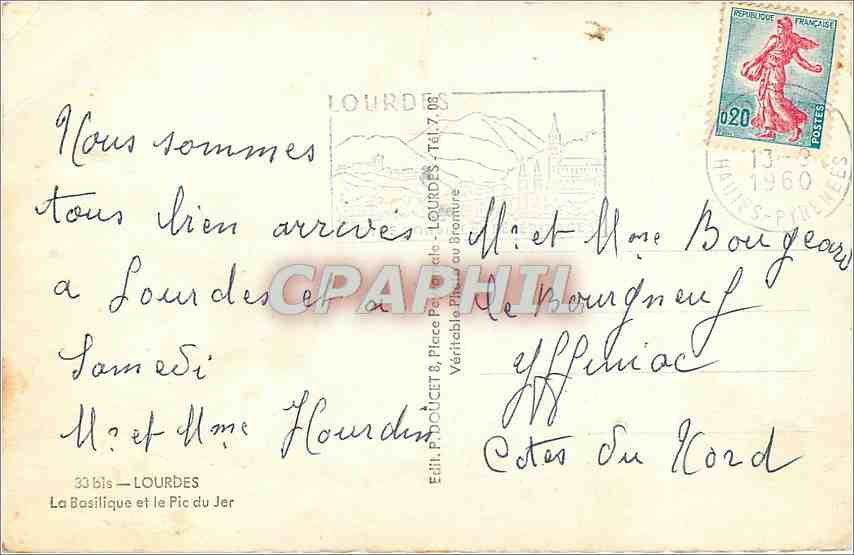 Nous sommes
tous bien arrivés
a Lourdes et a
Samedi
Mr et Mme Hourdin
33 bis — LOURDES
La Basilique et le Pic du Jer
LOURDES
Edit. P. DOUCET 8, Place Pe ale - LOURDES - Tél. 7.08
Véritable Photo au Bromure
CPARHIL
REPUBLIQUE FRANÇAISE
0,20
POSTES
13-9
1960
HAUTES-PYRENEES
Mr et Mme Bougeard
Le Bourgneuf
Yffiniac
Cotes du Nord